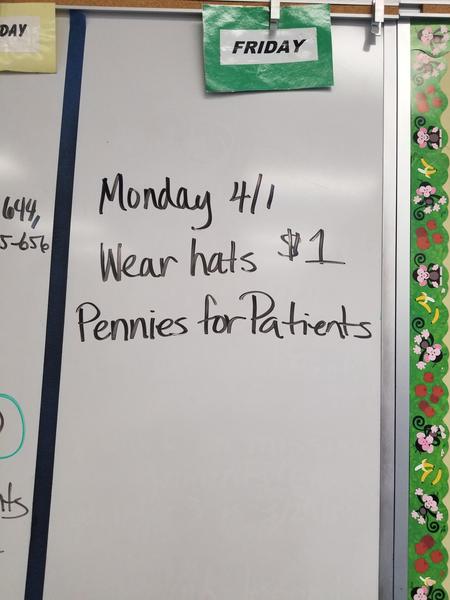 DAY
FRIDAY
644,
5-656
Monday 4/1
Wear hats $1
Pennies for Patients